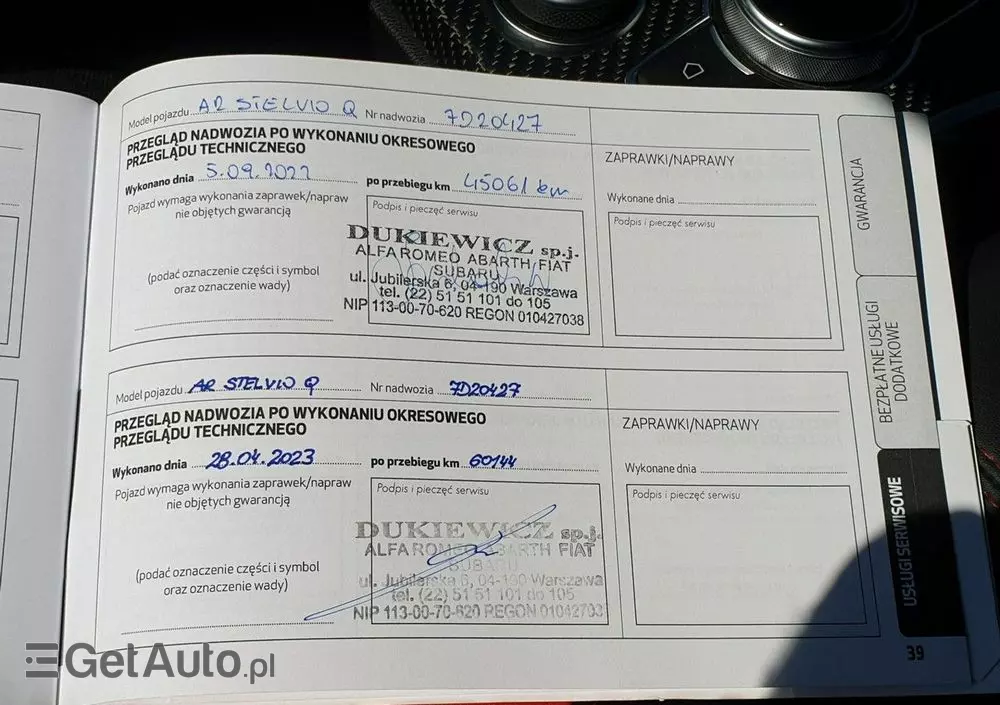 Model pojazdu AR STELVIO Q Nr nadwozia 7D20427
PRZEGLĄD NADWOZIA PO WYKONANIU OKRESOWEGO
PRZEGLĄDU TECHNICZNEGO
Wykonano dnia 5.09.2022 po przebiegu km 45061 km
Pojazd wymaga wykonania zaprawek/napraw
nie objętych gwarancją
(podać oznaczenie części i symbol
oraz oznaczenie wady)
Podpis i pieczęć serwisu
DUKIEWICZ sp.j.
ALFA ROMEO ABARTH FIAT
SUBARU
ul. Jubilerska 6, 04-190 Warszawa
tel. (22) 51 51 101 do 105
NIP 113-00-70-620 REGON 010427038
ZAPRAWKI/NAPRAWY
Wykonane dnia
Podpis i pieczęć serwisu
Model pojazdu AR STELVIO Q Nr nadwozia 7D20427
PRZEGLĄD NADWOZIA PO WYKONANIU OKRESOWEGO
PRZEGLĄDU TECHNICZNEGO
Wykonano dnia 28.04.2023 po przebiegu km 60144
Pojazd wymaga wykonania zaprawek/napraw
nie objętych gwarancją
(podać oznaczenie części i symbol
oraz oznaczenie wady)
Podpis i pieczęć serwisu
DUKIEWICZ sp.j.
ALFA ROMEO ABARTH FIAT
SUBARU
ul. Jubilerska 6, 04-190 Warszawa
tel. (22) 51 51 101 do 105
NIP 113-00-70-620 REGON 01042703
ZAPRAWKI/NAPRAWY
Wykonane dnia
Podpis i pieczęć serwisu
GWARANCJA
BEZPŁATNE USŁUGI
DODATKOWE
USŁUGI SERWISOWE
39
GetAuto.pl